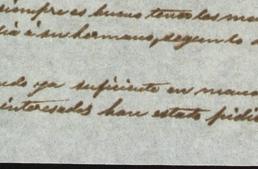 siempre es bueno tener los
a su hermano, segundo
ya suficiente en mano
interesados han estado